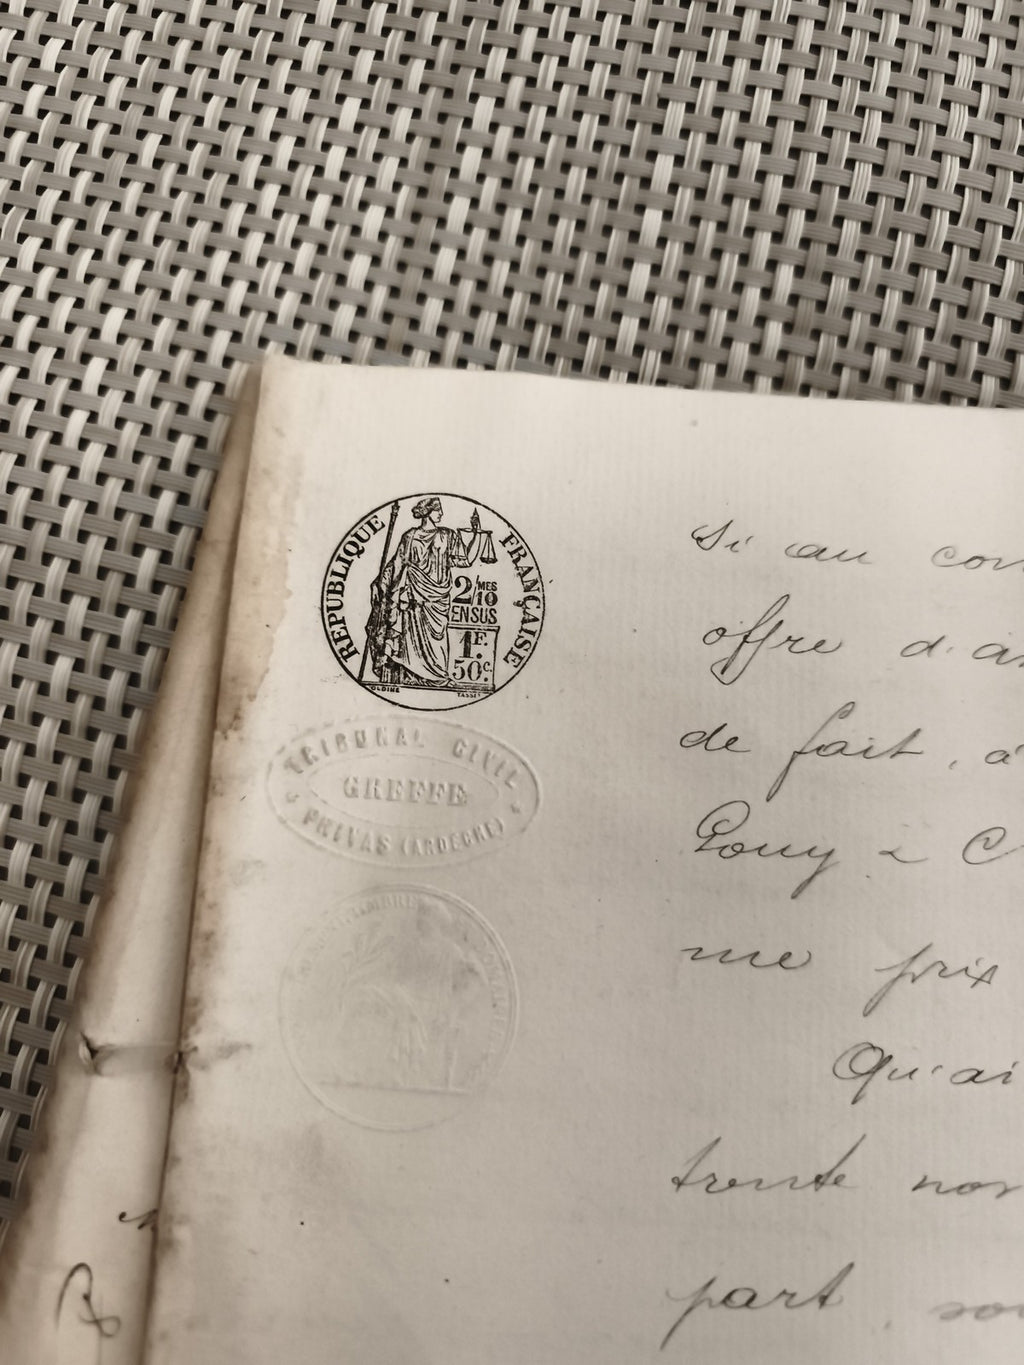 RÉPUBLIQUE FRANÇAISE
2/MES 10
EN SUS
1F.
50c.
OUDINÉ
TASSET
TRIBUNAL CIVIL
GREFFE
PRIVAS (ARDÈCHE)
TIMBRE
Si au con
offre d'
de fait, à
Pouy
me prix
Qu'ai
trente
part,